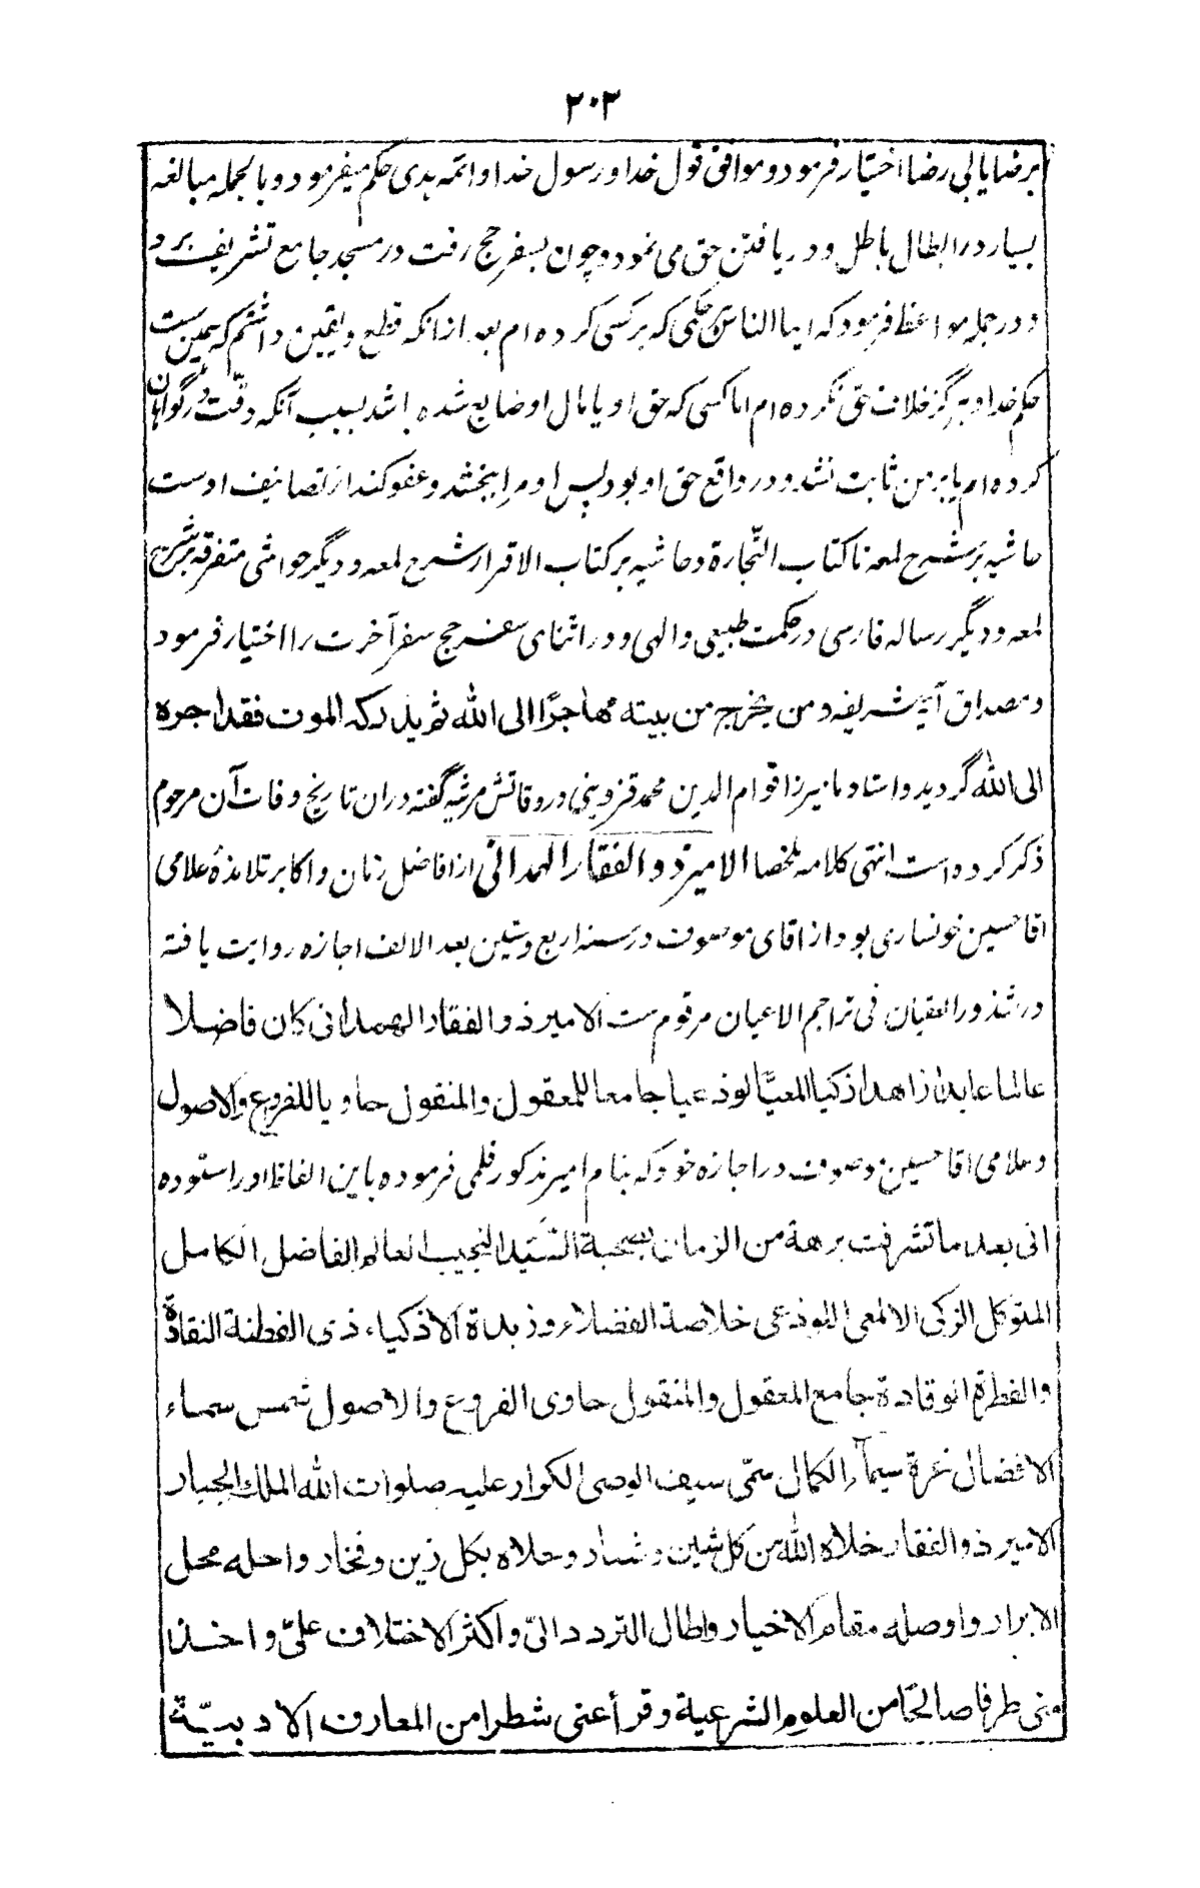 ۲۰۳
بر ضایا بی رضا اختیار فرمود و موافق قول خدا و رسول خدا و ائمه هدی حکم میفرمود و بالجمله مبالغه
بسیار در ابطال باطل و دریافتن حق می نمود و چون بسفر حج رفت در مسجد جامع تشریف برد
و در جمله مواعظ فرمود که ایها الناس حکمی که بر کسی کرده ام بعد از انکه قطع و یقین داشتم که همین ست
حکم خدا و هرگز خلاف حق نکرده ام اما کسی که حق او یا مال او ضایع شده باشد بسبب آنکه دقت در گواهان
کرده ام یا بر من ثابت نشد و در واقع حق او بود پس او مرا ببخشد و عفو کند از تصانیف اوست
حاشیه بر شرح لمعه تا کتاب التّجارة و حاشیه بر کتاب الاقرار شرح لمعه و دیگر حواشی متفرقه بر شرح
لمعه و دیگر رساله فارسی در حکمت طبیعی و الهی و در اثنای سفر حج سفر آخرت را اختیار فرمود
و مصداق آیهٔ شریفه و من یخرج من بیته مهاجرًا الی الله ثم یدرکه الموت فقد اجره
الی الله گردید و استاد ما میرزا قوام الدین محمد قزوینی در وفاتش مرثیه گفته دران تاریخ وفات آن مرحوم
ذکر کرده است انتهی کلامه ملخصا الامیر ذو الفقار الهمدانی از افاضل زمان و اکابر تلامذهٔ علامی
اقا حسین خونساری بود از اقای موصوف در سنه اربع و ستین بعد الالف اجازه روایت یافته
در شذور العقیان فی تراجم الاعیان مرقوم ست الامیر ذو الفقار الهمدانی کان فاضلا
عالما عابدا زاهدا ذکیا المعیًّا لوذعیا جامعا للمعقول والمنقول حاویا للفروع والاصول
و علامی اقا حسین موصوف در اجازه خود که بنام امیر مذکور قلمی فرموده باین الفاظ او را ستوده
انی بعد ما تشرفت برهة من الزمان بصحبة السَّید النجیب العالم الفاضل الکامل
المتوکل الزکی الالمعی اللوذعی خلاصة الفضلاء و زبدة الاذکیاء ذی الفطنة النقادة
والفطرة الوقادة جامع المعقول والمنقول حاوی الفروع والاصول شمس سماء
الافضال غرة سیماء الکمال سمّی سیف الوصی الکرار علیه صلوات الله الملک الجبار
الامیر ذو الفقار خلاه الله من کل شین و شنار و حلاه بکل زین و فخار و احله محل
الابرار و اوصله مقام الاخیار و اطال التردد الیّ و اکثر الاختلاف علیّ و اخذ
منی طرفا صالحًا من العلوم الشرعیة و قرأ عنی شطرا من المعارف الادبیّة